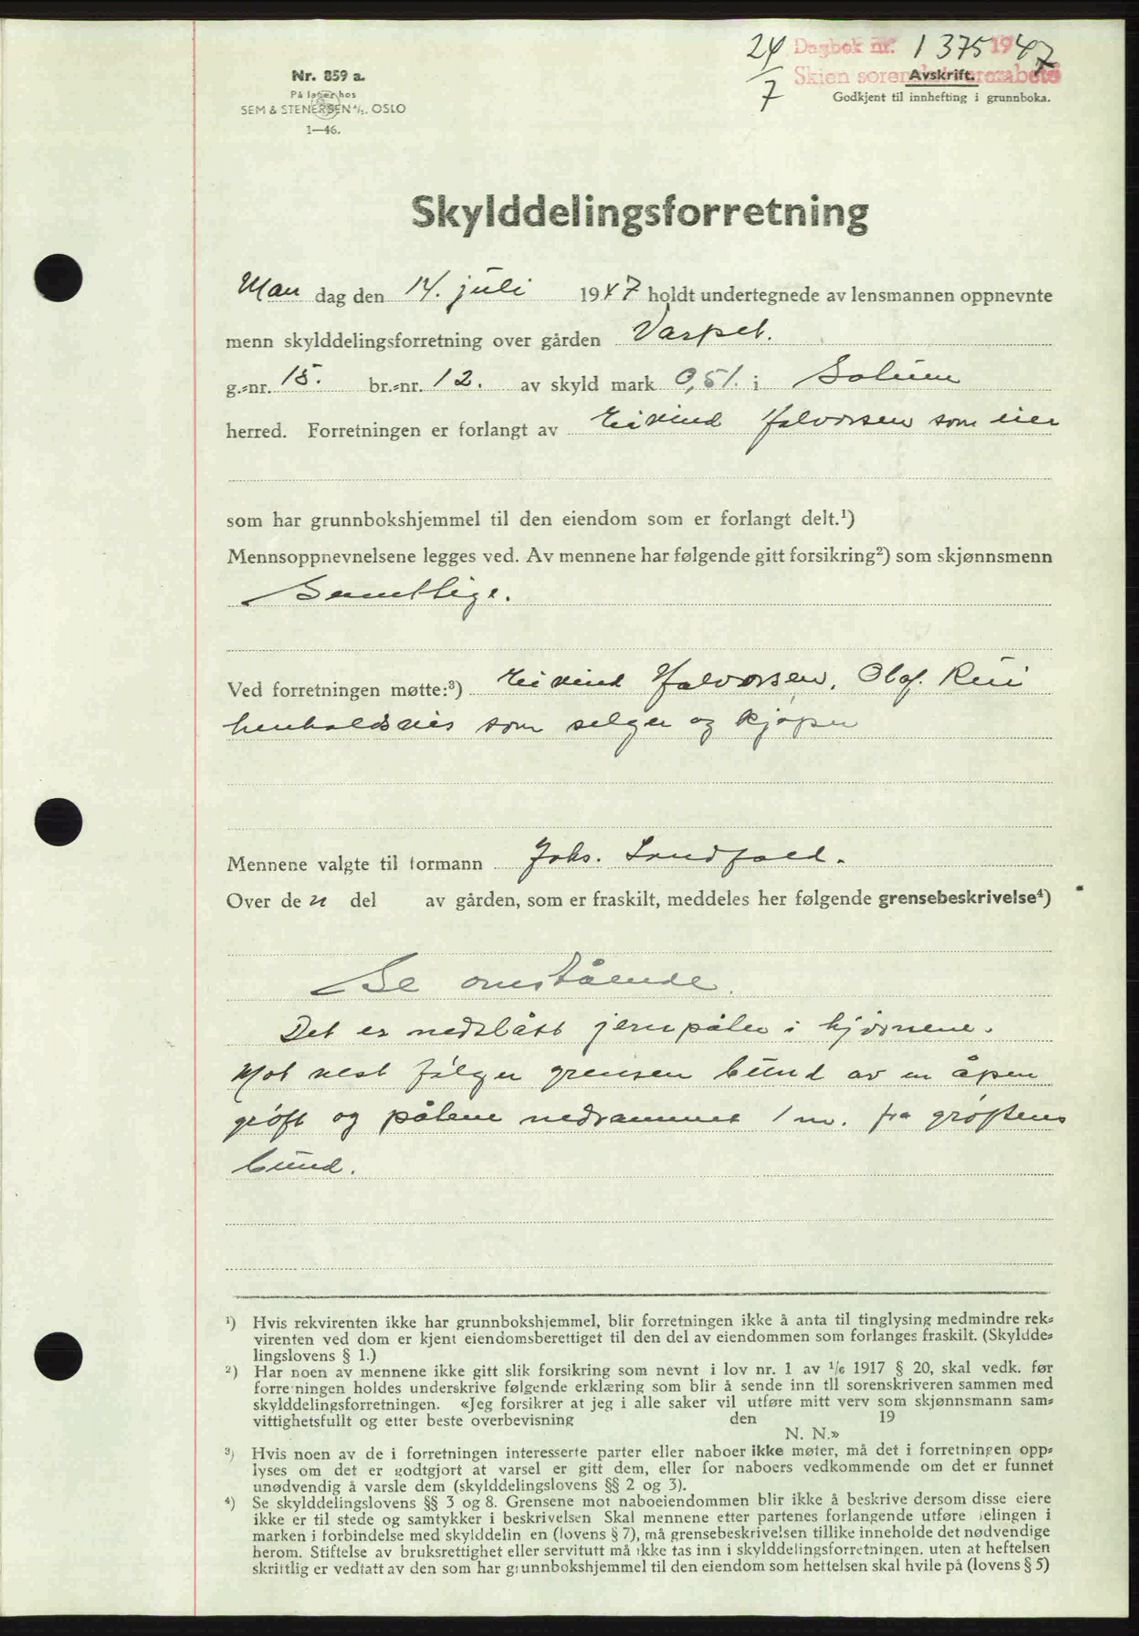 24/7 Dagbok nr. 1375 1947
Skien sorenskriverembete
Nr. 859 a.
På lager hos
SEM & STENERSEN A/S. OSLO
1—46.
Avskrift.
Godkjent til innhefting i grunnboka.
Skylddelingsforretning
Man dag den 14. juli 1947 holdt undertegnede av lensmannen oppnevnte
menn skylddelingsforretning over gården Varpet.
g.=nr. 15. br.=nr. 12. av skyld mark 0,51. i Solum
herred. Forretningen er forlangt av Eivind Halvorsen som eier
som har grunnbokshjemmel til den eiendom som er forlangt delt.¹)
Mennsoppnevnelsene legges ved. Av mennene har følgende gitt forsikring²) som skjønnsmenn
Samtlige.
Ved forretningen møtte:³) Eivind Halvorsen, Olaf Rui
henholdsvis som selger og kjøper
Mennene valgte til formann Johs. Landfald.
Over de n del av gården, som er fraskilt, meddeles her følgende grensebeskrivelse⁴)
Se omstående.
Det er nedslått jernpåler i hjørnene.
Mot vest følger grensen bund av en åpen
grøft og pålene nedrammet 1 m. fra grøftens
bund.
¹) Hvis rekvirenten ikke har grunnbokshjemmel, blir forretningen ikke å anta til tinglysing medmindre rek=
virenten ved dom er kjent eiendomsberettiget til den del av eiendommen som forlanges fraskilt. (Skyldde=
lingslovens § 1.)
²) Har noen av mennene ikke gitt slik forsikring som nevnt i lov nr. 1 av 1/6 1917 § 20, skal vedk. før
forretningen holdes underskrive følgende erklæring som blir å sende inn til sorenskriveren sammen med
skylddelingsforretningen. «Jeg forsikrer at jeg i alle saker vil utføre mitt verv som skjønnsmann sam=
vittighetsfullt og etter beste overbevisning den 19
N. N.»
³) Hvis noen av de i forretningen interesserte parter eller naboer ikke møter, må det i forretningen opp=
lyses om det er godtgjort at varsel er gitt dem, eller for naboers vedkommende om det er funnet
unødvendig å varsle dem (skylddelingslovens §§ 2 og 3).
⁴) Se skylddelingslovens §§ 3 og 8. Grensene mot naboeiendommen blir ikke å beskrive dersom disse eiere
ikke er til stede og samtykker i beskrivelsen Skal mennene etter partenes forlangende utføre delingen i
marken i forbindelse med skylddelin en (lovens § 7), må grensebeskrivelsen tillike inneholde det nødvendige
herom. Stiftelse av bruksrettighet eller servitutt må ikke tas inn i skylddelingsforretningen, uten at heftelsen
skriftlig er vedtatt av den som har grunnbokshjemmel til den eiendom som heftelsen skal hvile på (lovens § 5)